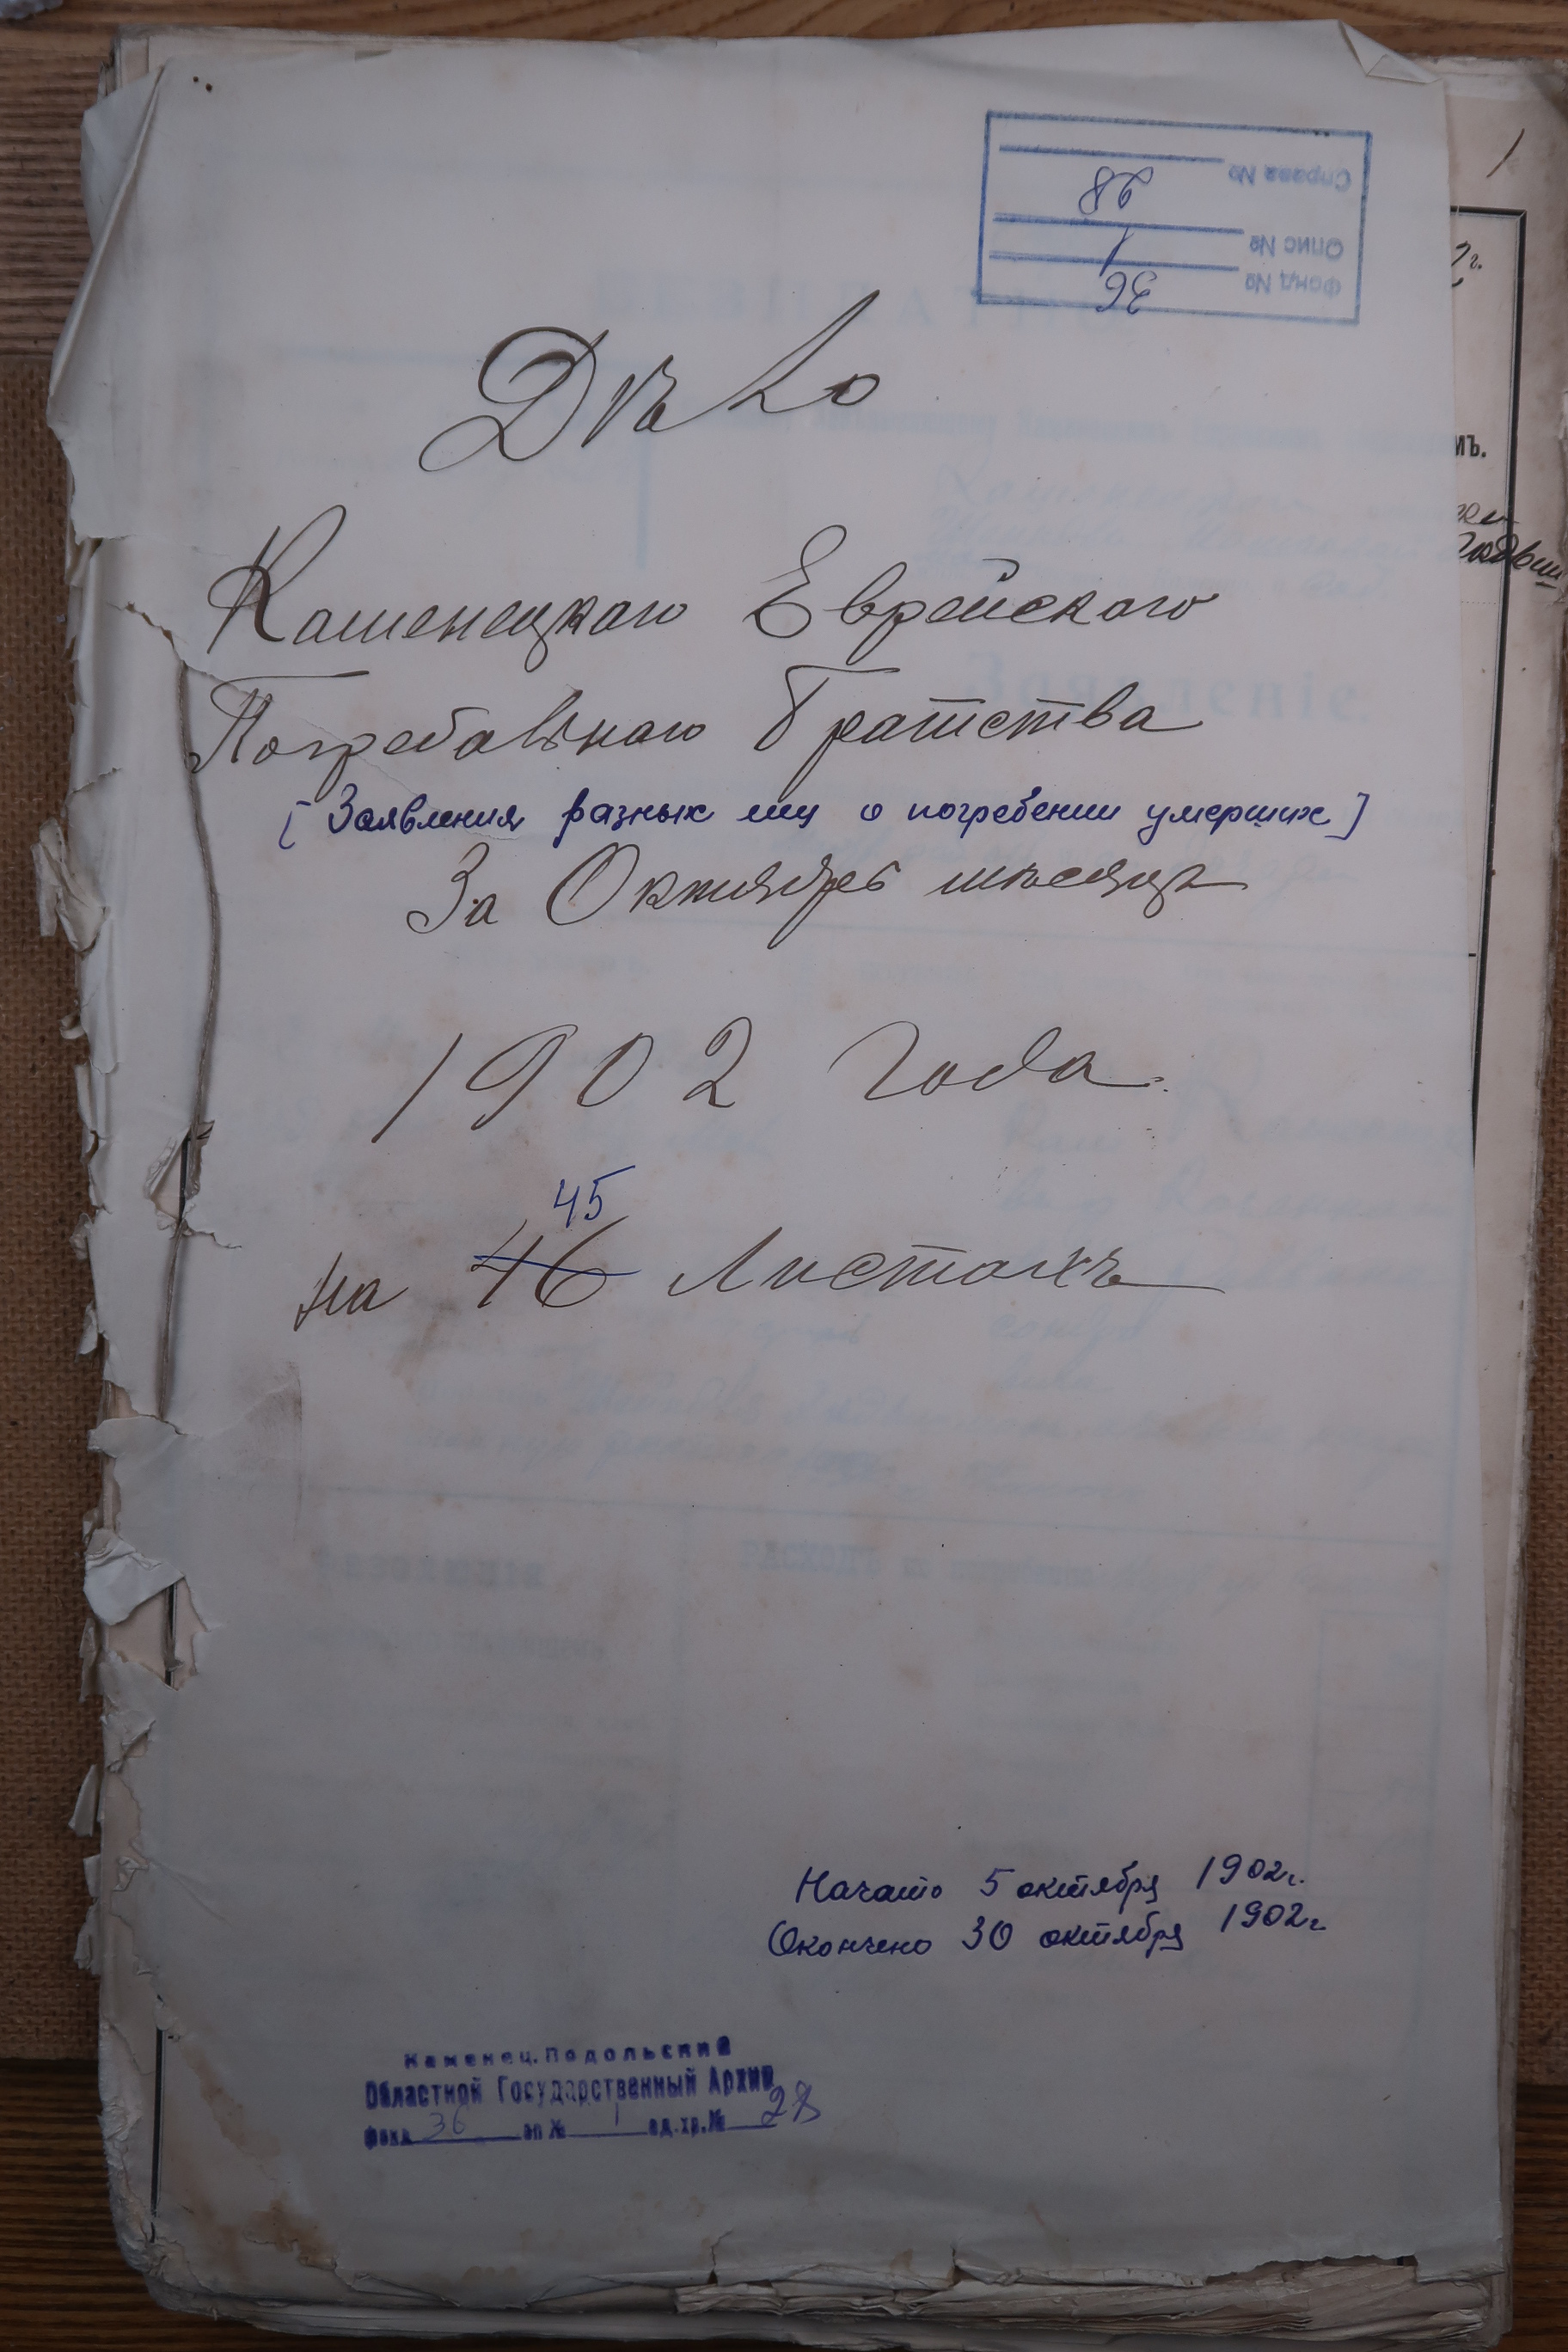 Фонд № 36
Опис № 1
Справа № 28
1
Дѣло
Каменецкаго Еврейскаго
Погребальнаго Братства
[Заявления разных лиц о погребении умерших]
За Октябрь мѣсяцъ
1902 года.
45
на 46 Листахъ
Начато 5 октября 1902г.
Окончено 30 октября 1902г
Каменец.Подольский
Областной Государственный Архив
фонд 36 оп № 1 ед.хр.№ 28